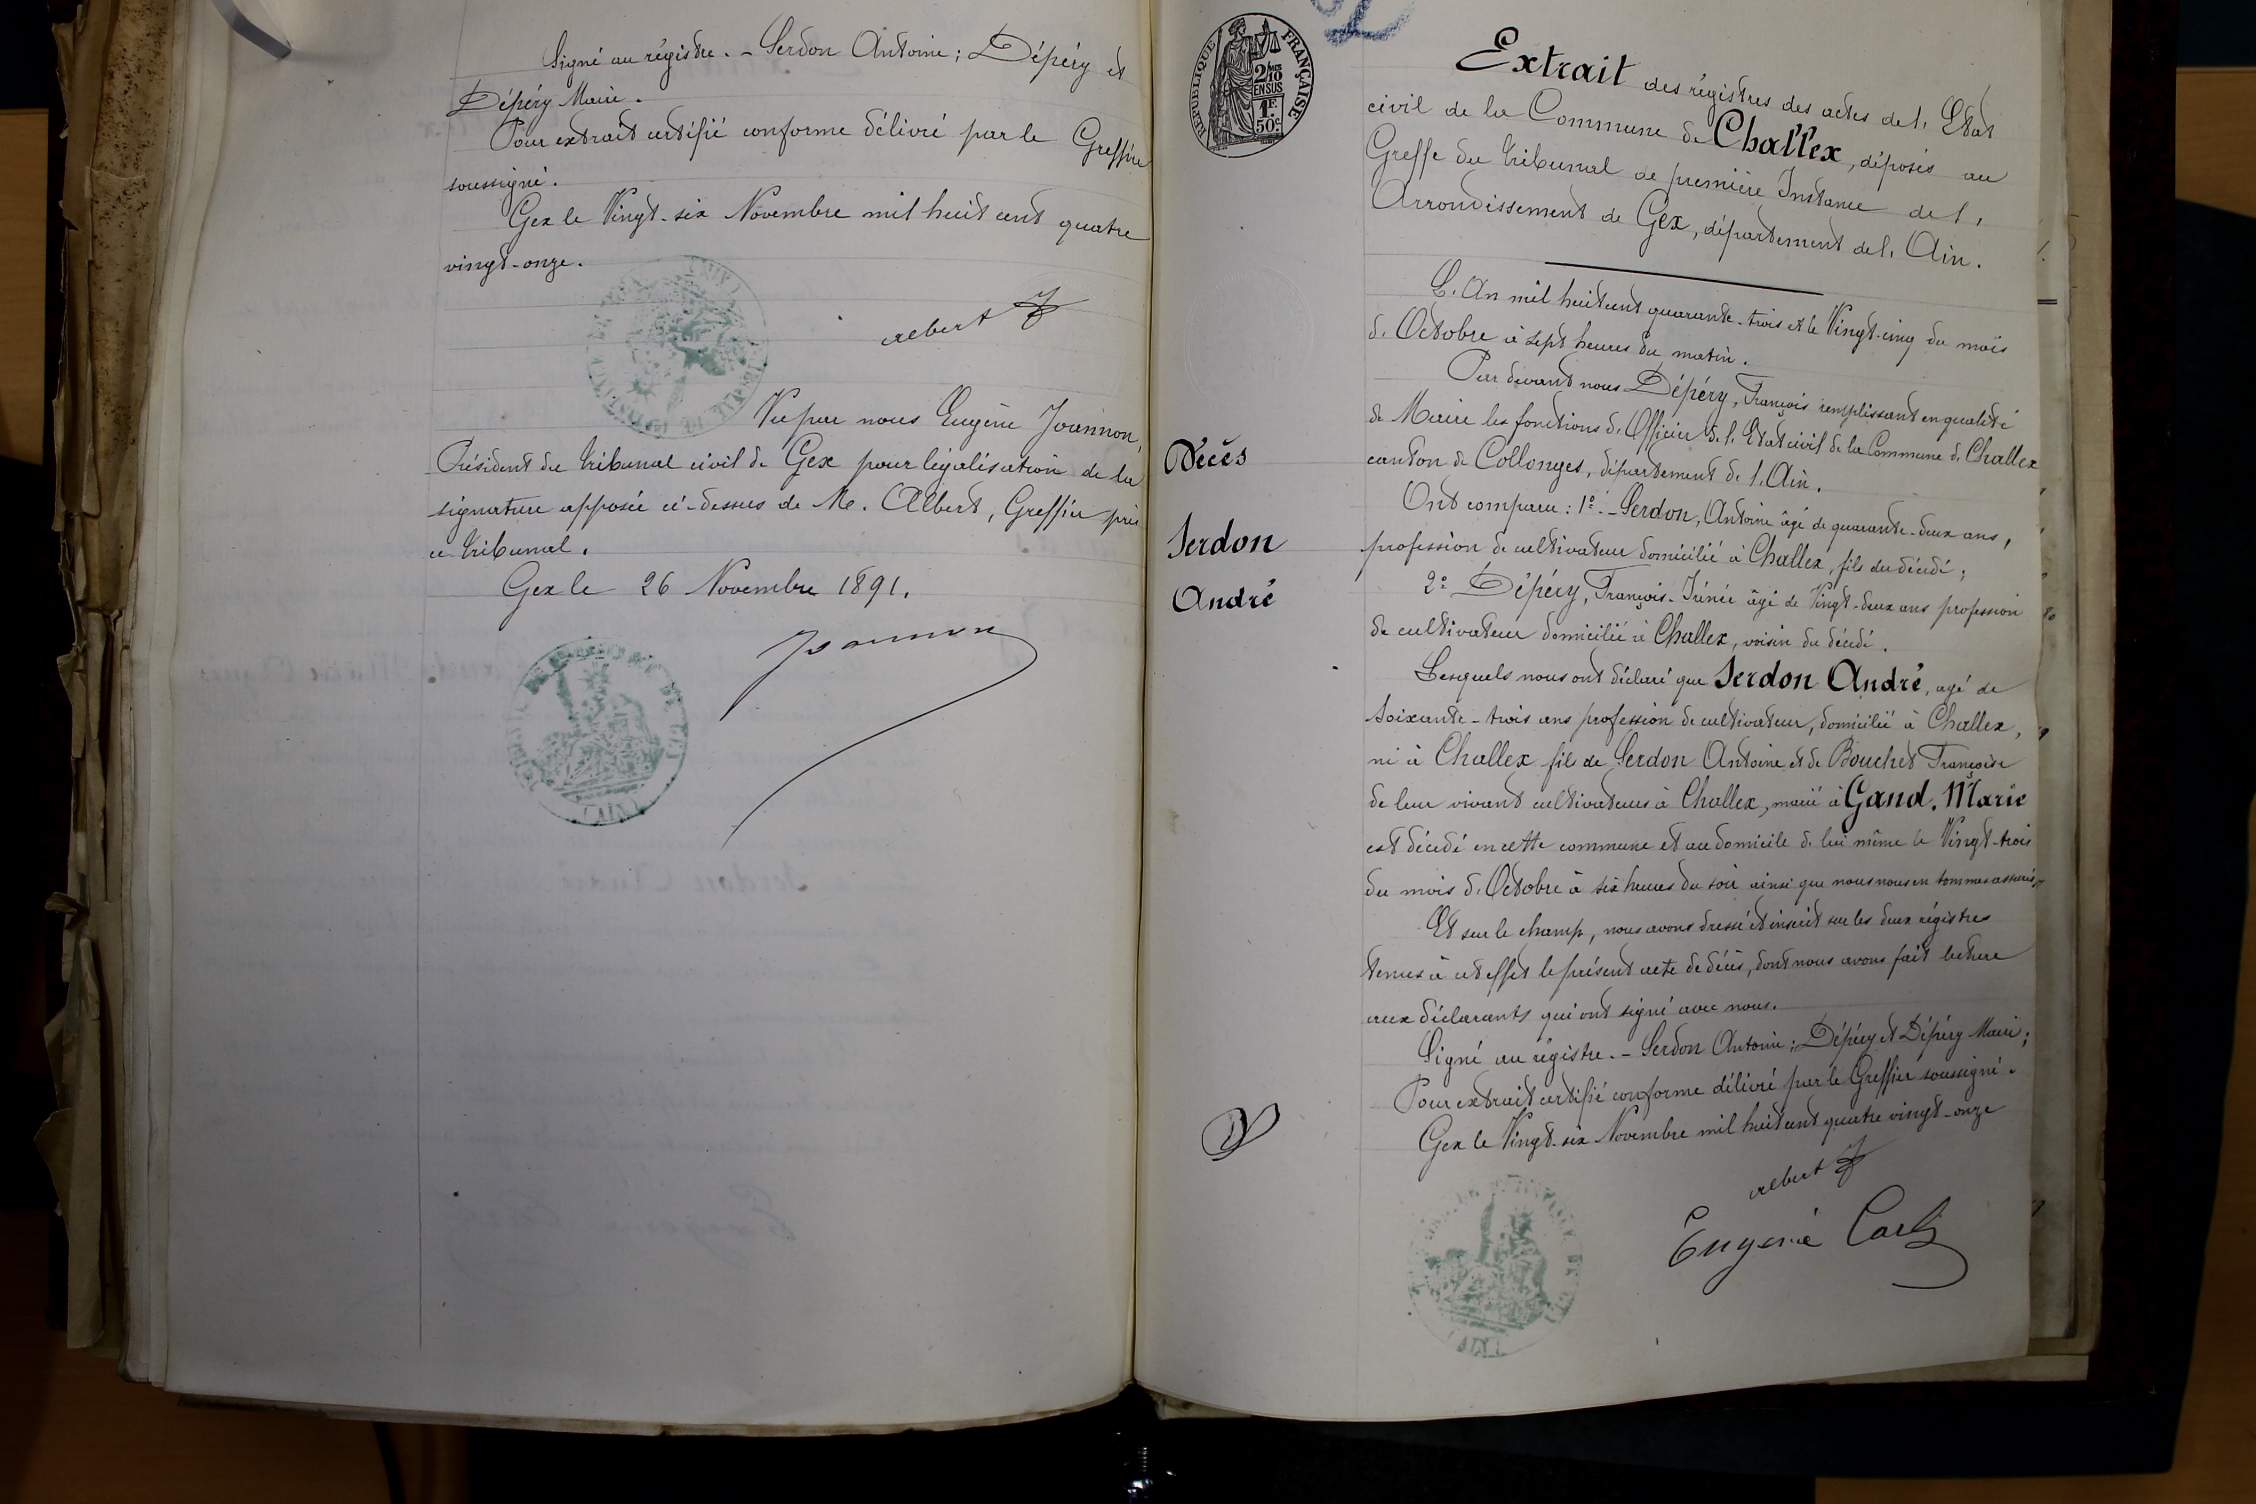 Signé au régistre. - Serdon Antoine ; Dépéry et
Dépéry Maire.
Pour extrait certifié conforme délivré par le Greffier
soussigné.
Gex le Vingt-six Novembre mil huit cent quatre
vingt-onze.
Albert
Vu par nous Eugène Joannon,
Président du Tribunal civil de Gex pour légalisation de la
signature apposée ci-dessus de Me. Albert, Greffier près
ce tribunal.
Gex le 26 Novembre 1891.
Joannon
RÉPUBLIQUE FRANÇAISE
2/10
EN SUS
1F.
50c.
Extrait des régistres des actes de l'Etat
civil de la Commune de Challex, déposés au
Greffe du Tribunal de première Instance de l'
Arrondissement de Gex, département de l'Ain.
L'An mil huit cent quarante-trois et le Vingt-cinq du mois
d'Octobre à sept heures du matin.
Par devant nous Dépéry, François remplissant en qualité
de Maire les fonctions d'Officier de l'Etat civil de la Commune de Challex
canton de Collonges, département de l'Ain.
Ont comparu : 1° - Serdon, Antoine âgé de quarante-deux ans,
profession de cultivateur domicilié à Challex, fils du décédé ;
2° Dépéry, François-Irénée âgé de Vingt-deux ans profession
de cultivateur domicilié à Challex, voisin du décédé.
Lesquels nous ont déclaré que Serdon André, agé de
soixante-trois ans profession de cultivateur, domicilié à Challex,
né à Challex fils de Serdon Antoine et de Bouchet Françoise
de leur vivant cultivateurs à Challex, marié à Gand. Marie
est décédé en cette commune et au domicile de lui même le Vingt-trois
du mois d'Octobre à six heures du soir ainsi que nous nous en sommes assurés.
Et sur le champ, nous avons dressé et inscrit sur les deux régistres
tenus à cet effet le présent acte de décès, dont nous avons fait lecture
aux déclarants qui ont signé avec nous.
Signé au régistre. - Serdon Antoine ; Dépéry et Dépéry Maire ;
Pour extrait certifié conforme délivré par le Greffier soussigné.
Gex le Vingt-six Novembre mil huit cent quatre vingt-onze
Albert
Eugénie
Décès
Serdon
André